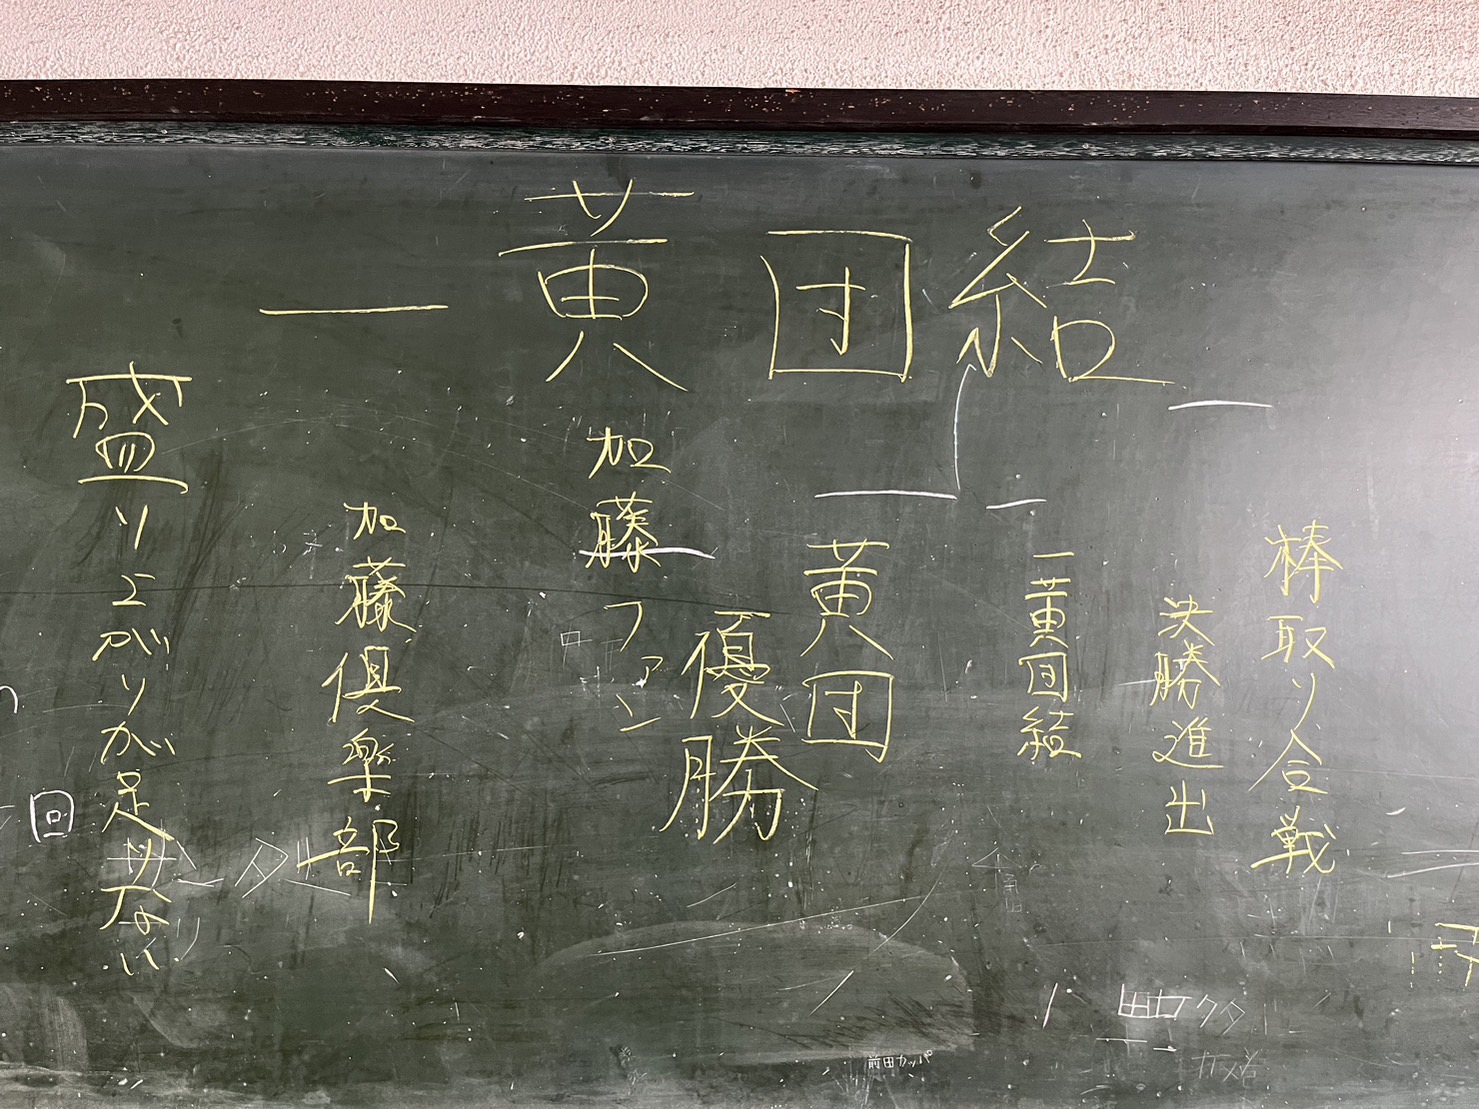 一黄団結
棒取り合戦
決勝進出
一黄団結
黄団
優勝
加藤ファン
加藤倶楽部
盛り上がりが足りない
回
前田カッパ